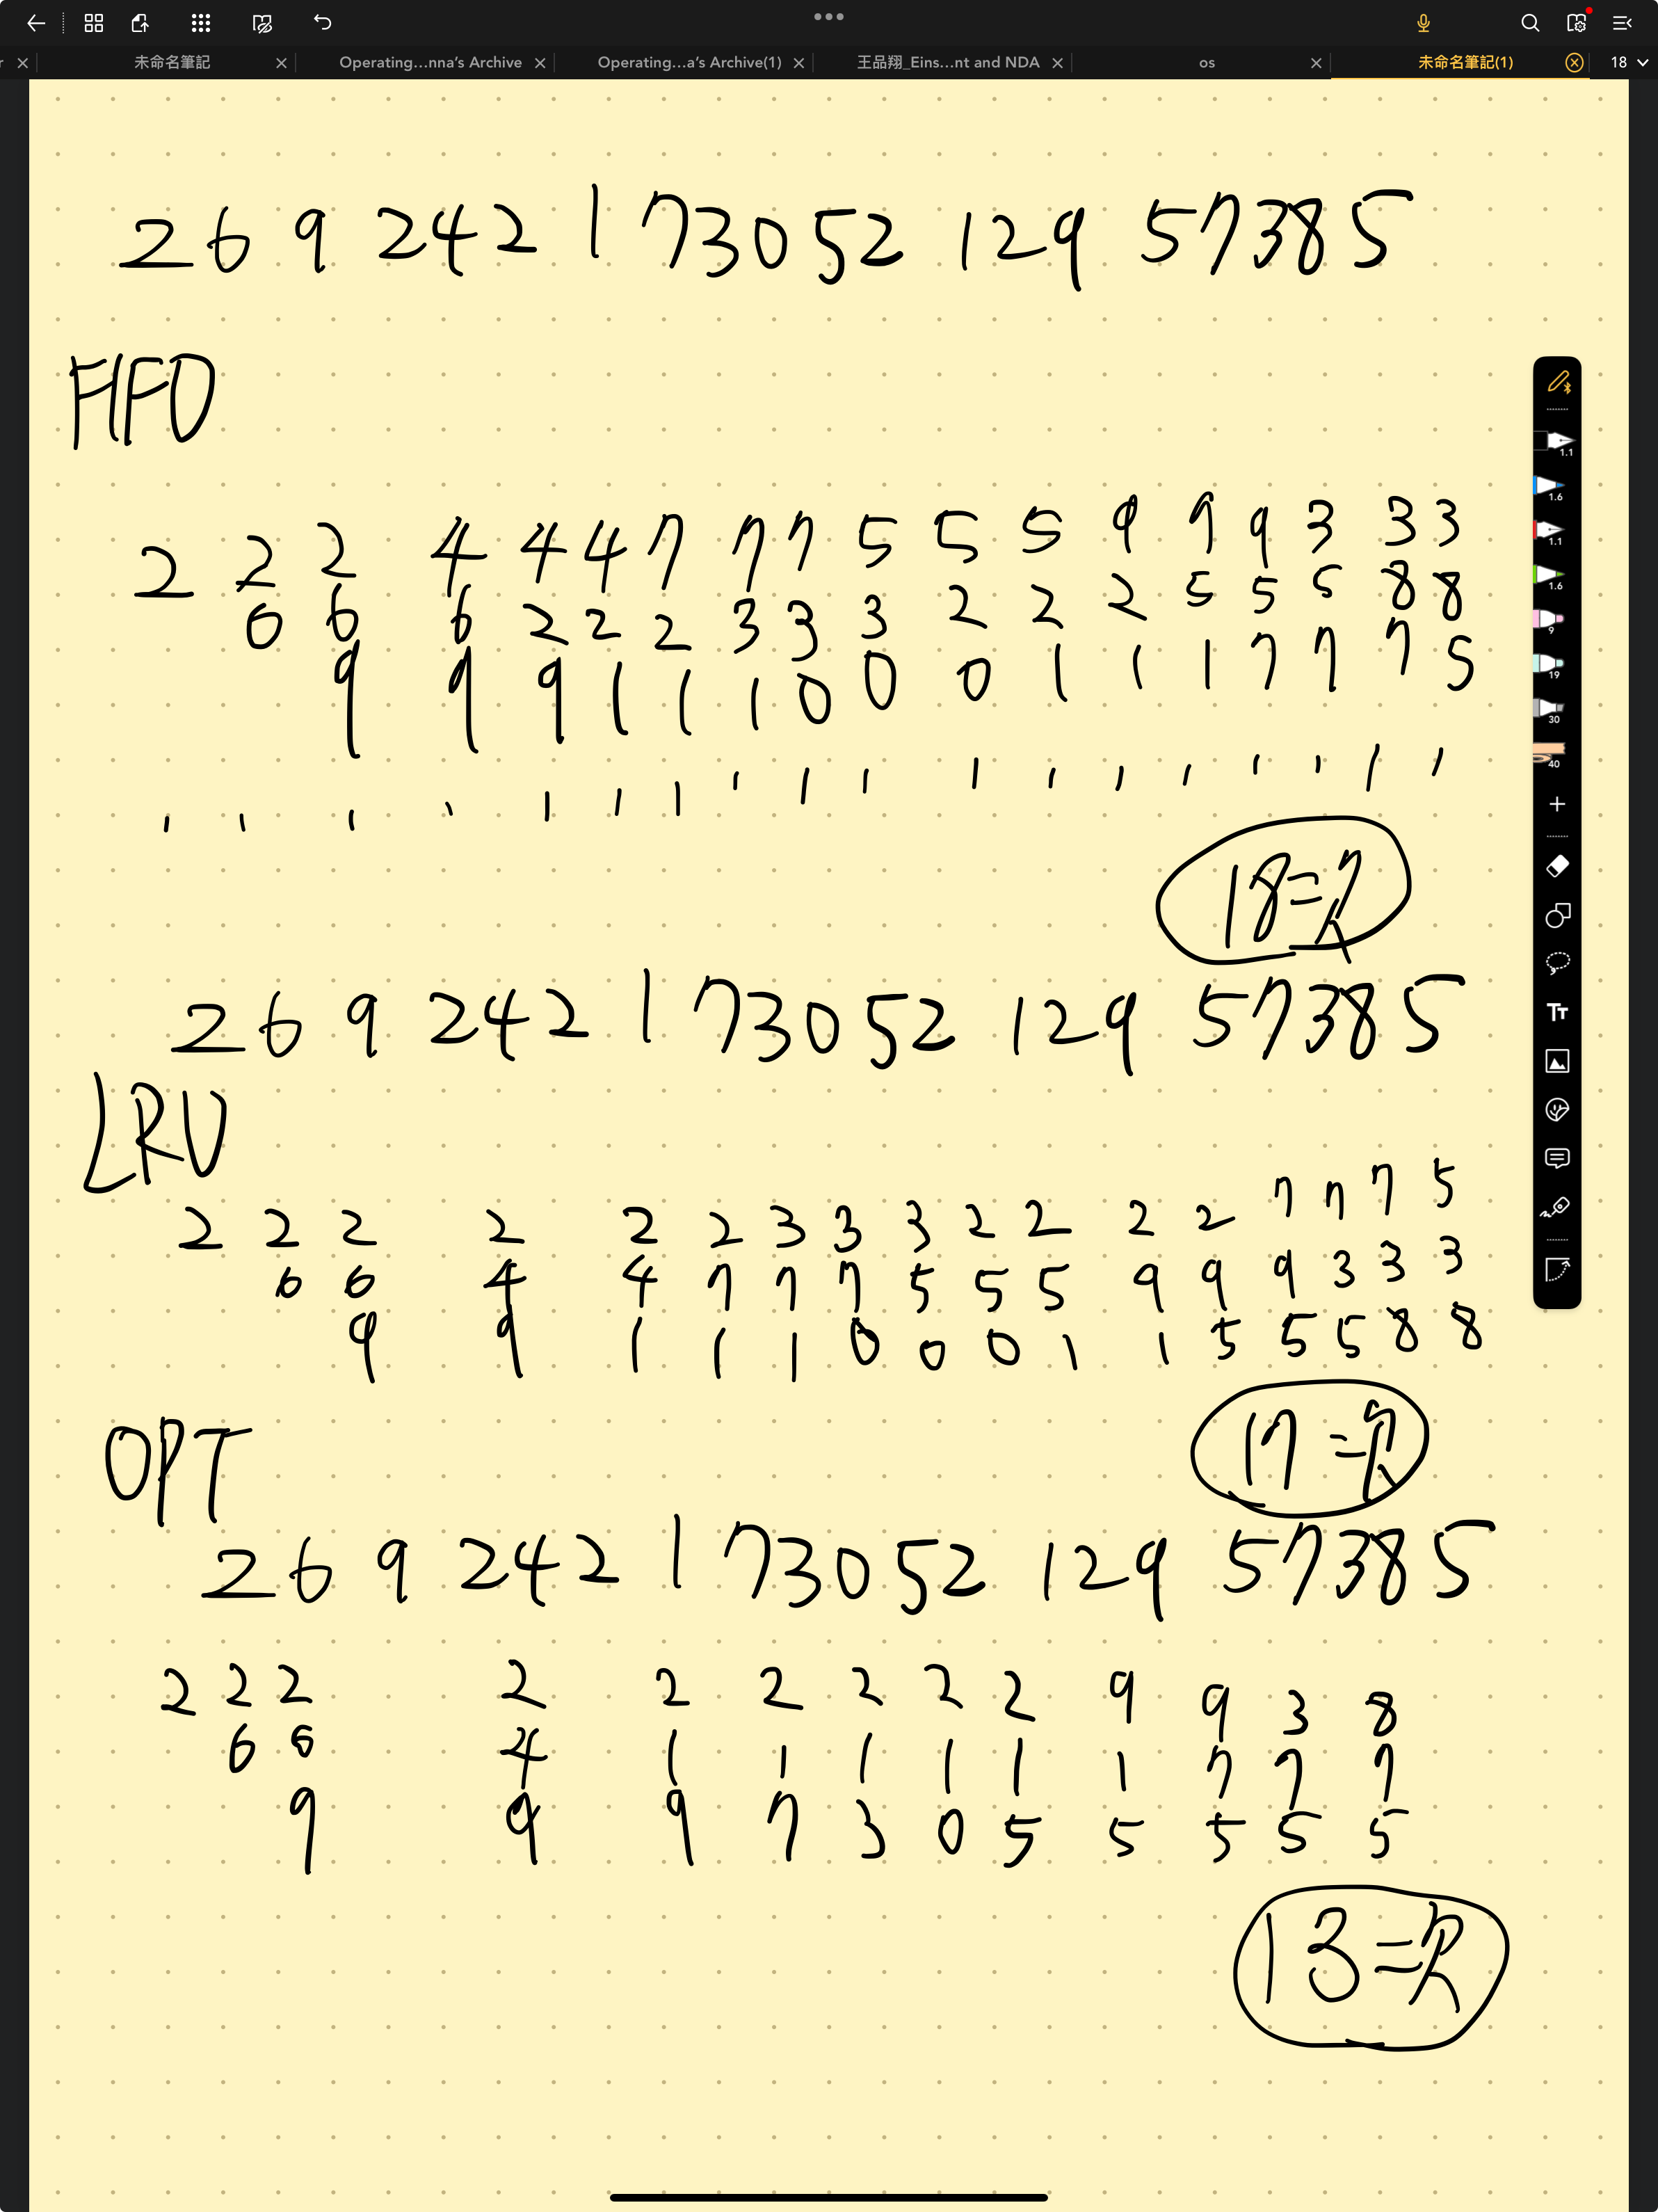 未命名筆記
Operating...nna's Archive
Operating...a's Archive(1)
王品翔_Eins...nt and NDA
os
未命名筆記(1)
18
2 6 9 2 4 2 1 7 3 0 5 2 1 2 9 5 7 3 8 5
FIFO
2 2 2 4 4 4 7 7 7 5 5 5 9 9 9 3 3 3
6 6 6 2 2 2 3 3 3 2 2 2 5 5 5 8 8
9 9 9 1 1 1 0 0 0 1 1 1 7 7 7 5
18=次
2 6 9 2 4 2 1 7 3 0 5 2 1 2 9 5 7 3 8 5
LRU
2 2 2 2 2 2 3 3 3 2 2 2 2 7 7 7 5
6 6 4 4 7 7 7 5 5 5 9 9 9 3 3 3
9 9 1 1 1 0 0 0 1 1 5 5 5 8 8
17=次
OPT
2 6 9 2 4 2 1 7 3 0 5 2 1 2 9 5 7 3 8 5
2 2 2 2 2 2 2 2 2 9 9 3 8
6 6 4 1 1 1 1 1 1 7 7 7
9 9 9 7 3 0 5 5 5 5 5
13=次
1.1
1.6
1.1
1.6
9
19
30
40
TT